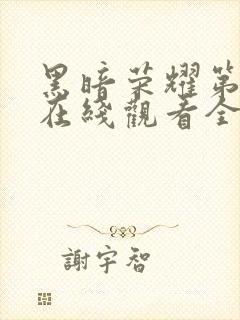 黑暗荣耀第
在綫觀看全
謝宇智